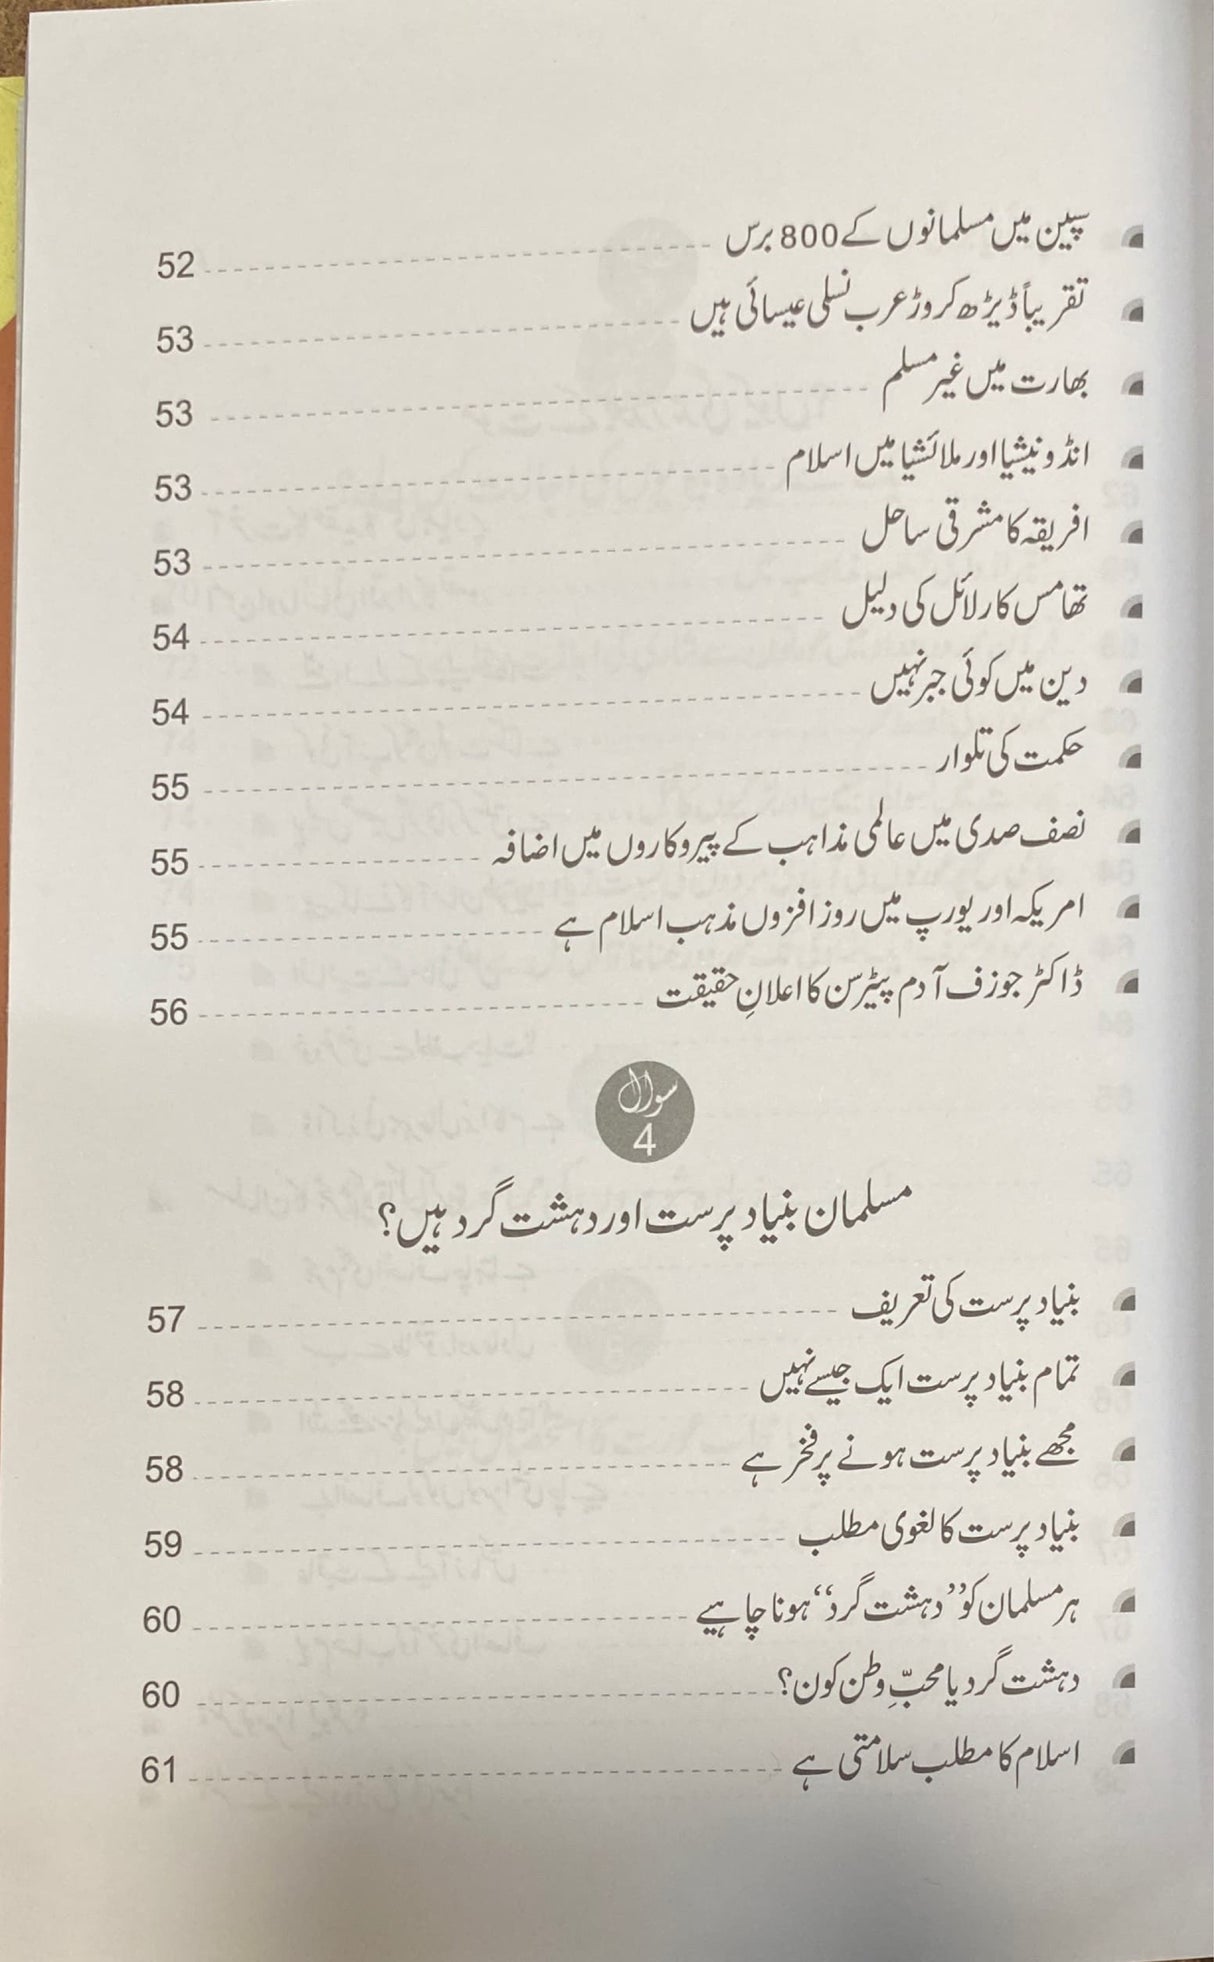 سپین میں مسلمانوں کے 800 برس 52
تقریباً ڈیڑھ کروڑ عرب نسلی عیسائی ہیں 53
بھارت میں غیر مسلم 53
انڈونیشیا اور ملائشیا میں اسلام 53
افریقہ کا مشرقی ساحل 53
تھامس کارلائل کی دلیل 54
دین میں کوئی جبر نہیں 54
حکمت کی تلوار 55
نصف صدی میں عالمی مذاہب کے پیروکاروں میں اضافہ 55
امریکہ اور یورپ میں روز افزوں مذہب اسلام ہے 55
ڈاکٹر جوزف آدم پیٹرسن کا اعلانِ حقیقت 56
سوال
4
مسلمان بنیاد پرست اور دہشت گرد ہیں؟
بنیاد پرست کی تعریف 57
تمام بنیاد پرست ایک جیسے نہیں 58
مجھے بنیاد پرست ہونے پر فخر ہے 58
بنیاد پرست کا لغوی مطلب 59
ہر مسلمان کو ’’دہشت گرد‘‘ ہونا چاہیے 60
دہشت گرد یا محبِّ وطن کون؟ 60
اسلام کا مطلب سلامتی ہے 61